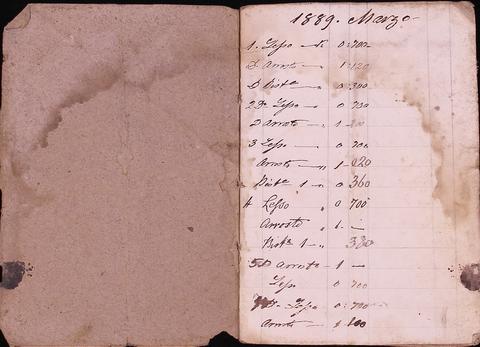 1889. Marzo
1. Lesso 0:700
D. Arrosto 1 120
D Bist.a 0 300
2 D.o Lesso 0 700
D Arrosto 1
3 Lesso 0 700
Arrosto „ 1 - 020
Bist.a 1 „ 0 360
4 Lesso „ 0 700
Arrosto „ 1. —
Bist.a 1 - „ 380
5 D Arrosto 1 —
Lesso 0 700
D.o Lesso 0:700
Arrosto 1 100